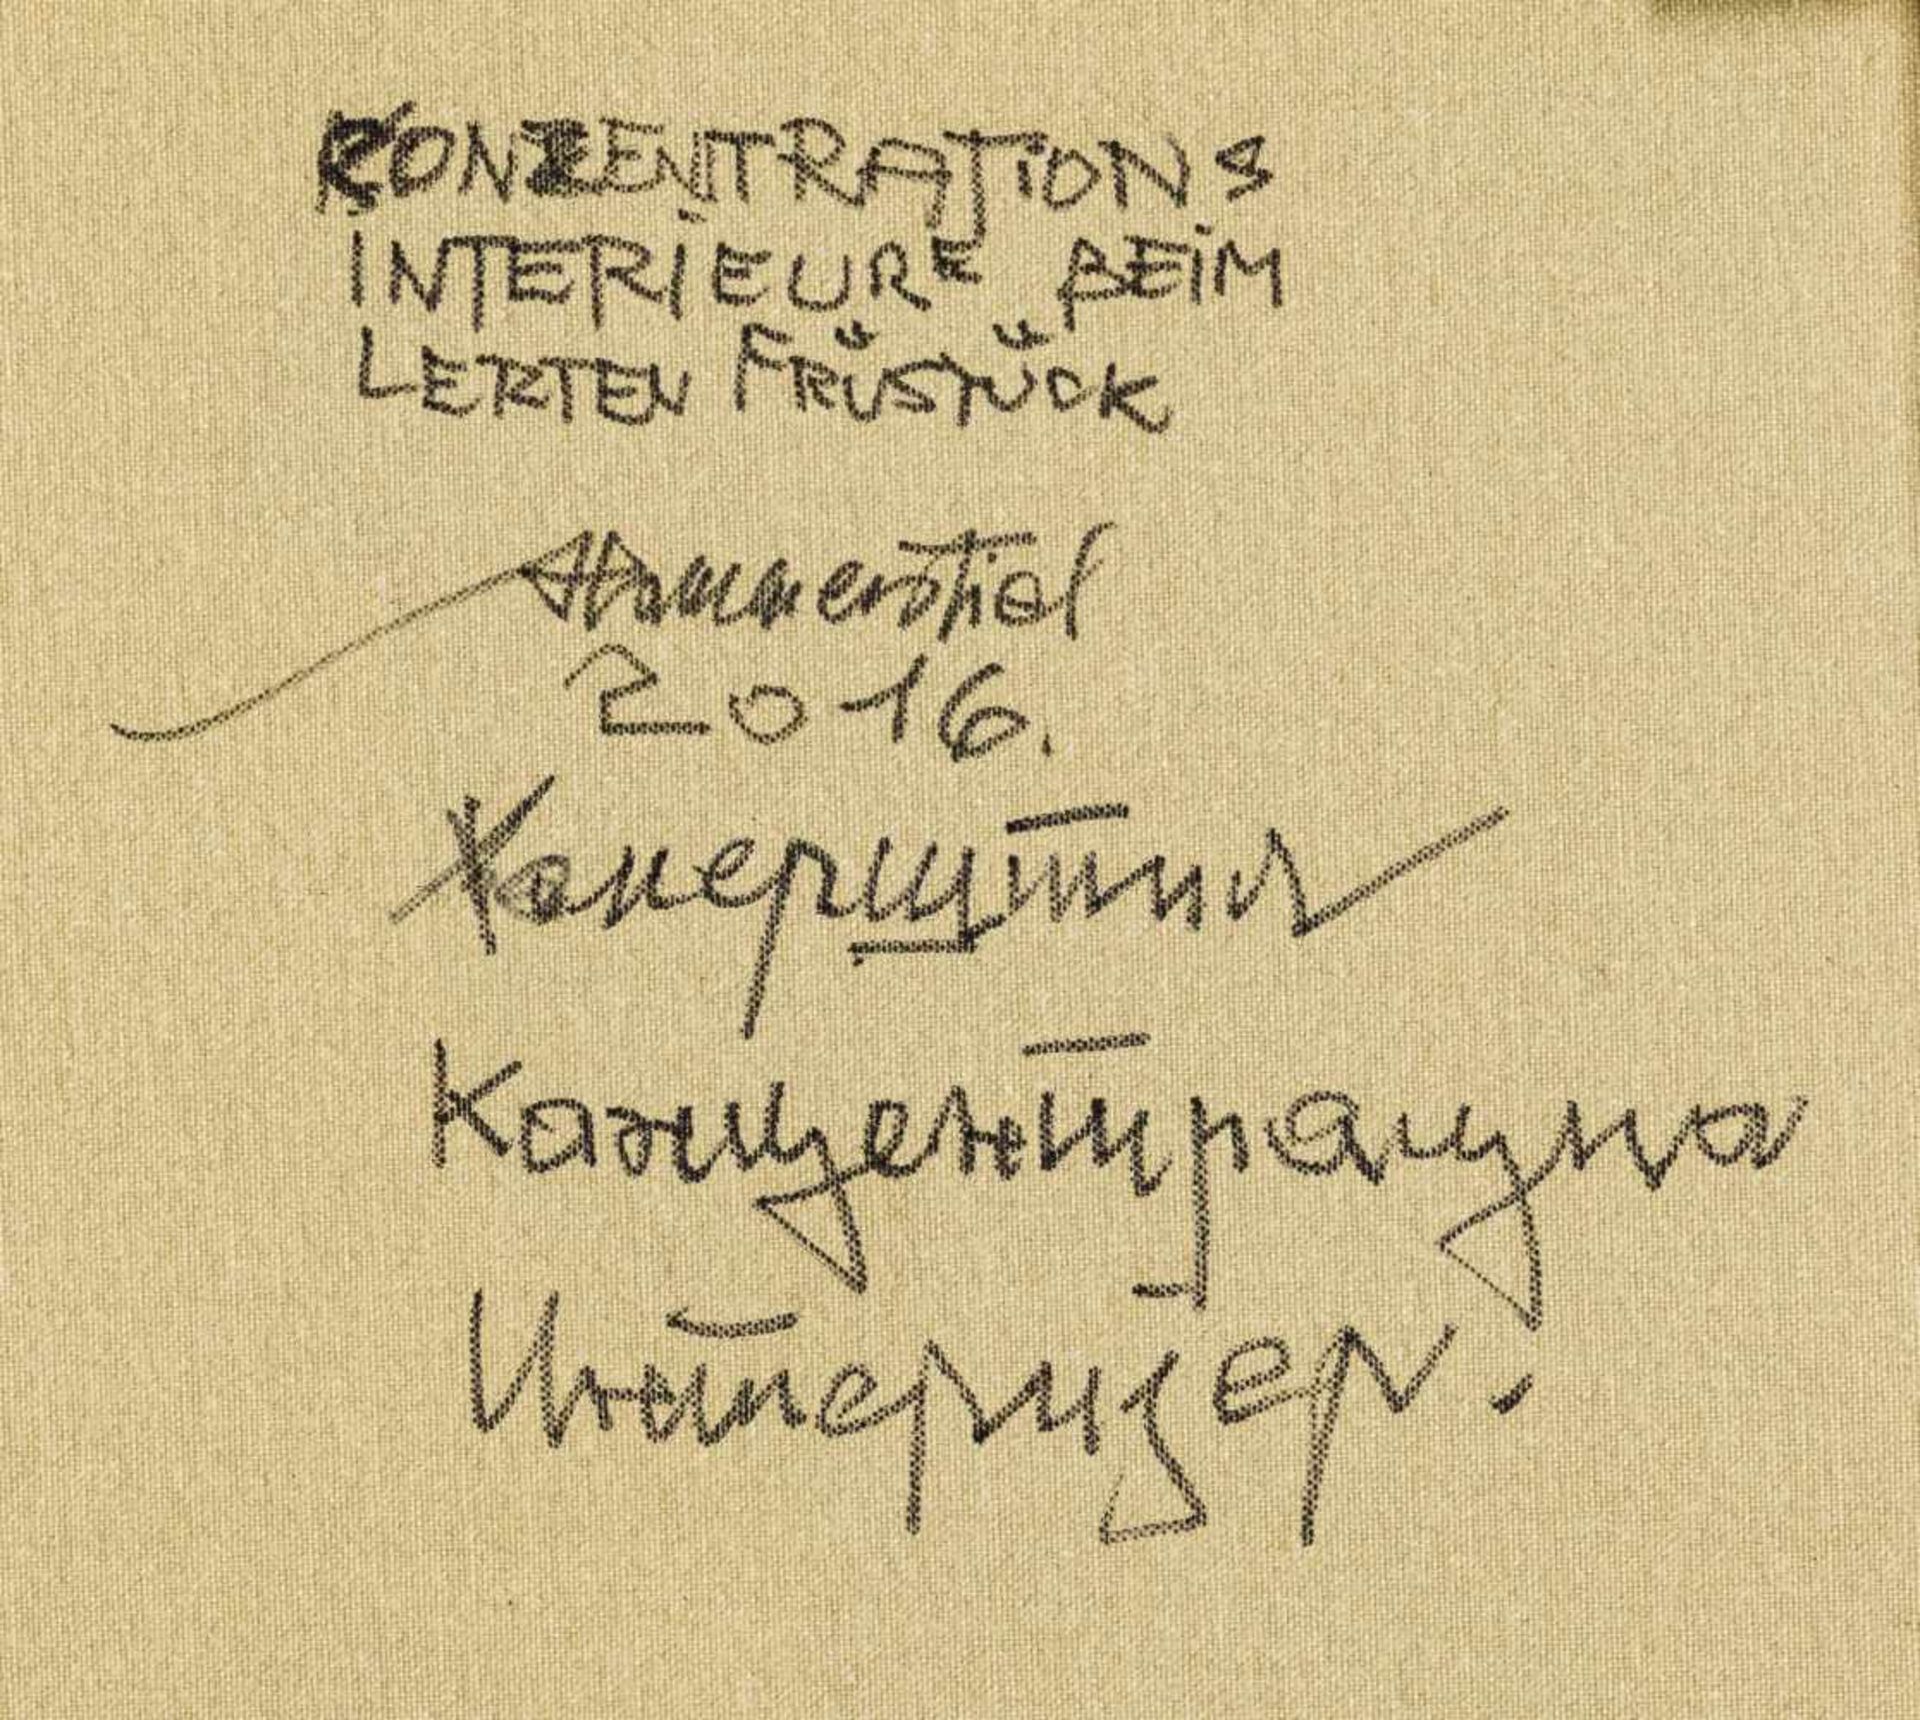 KONZENTRATIONS
INTERIEURE BEIM
LERTEN FRÜSTÜCK
Hammerstiel
2016.
Хамерштил
Канцентрацна
Интеризер.